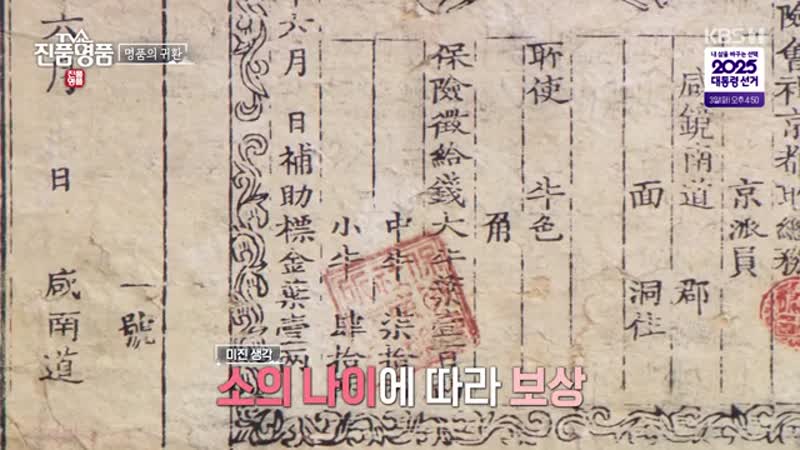 TV쇼
진품명품
진품
명품
명품의 귀환
KBS 1
내 삶을 바꾸는 선택
2025
대통령선거
3일(화) 오후4:50
險會社京都
京派員
咸鏡南道 郡
面 洞住
所使 牛色
角
保險徵給錢大牛葉壹百
中牛 柒拾
小牛 肆拾
六月 日補助標金葉壹兩
一號
六月 日 咸南道
미진 생각
소의 나이에 따라 보상